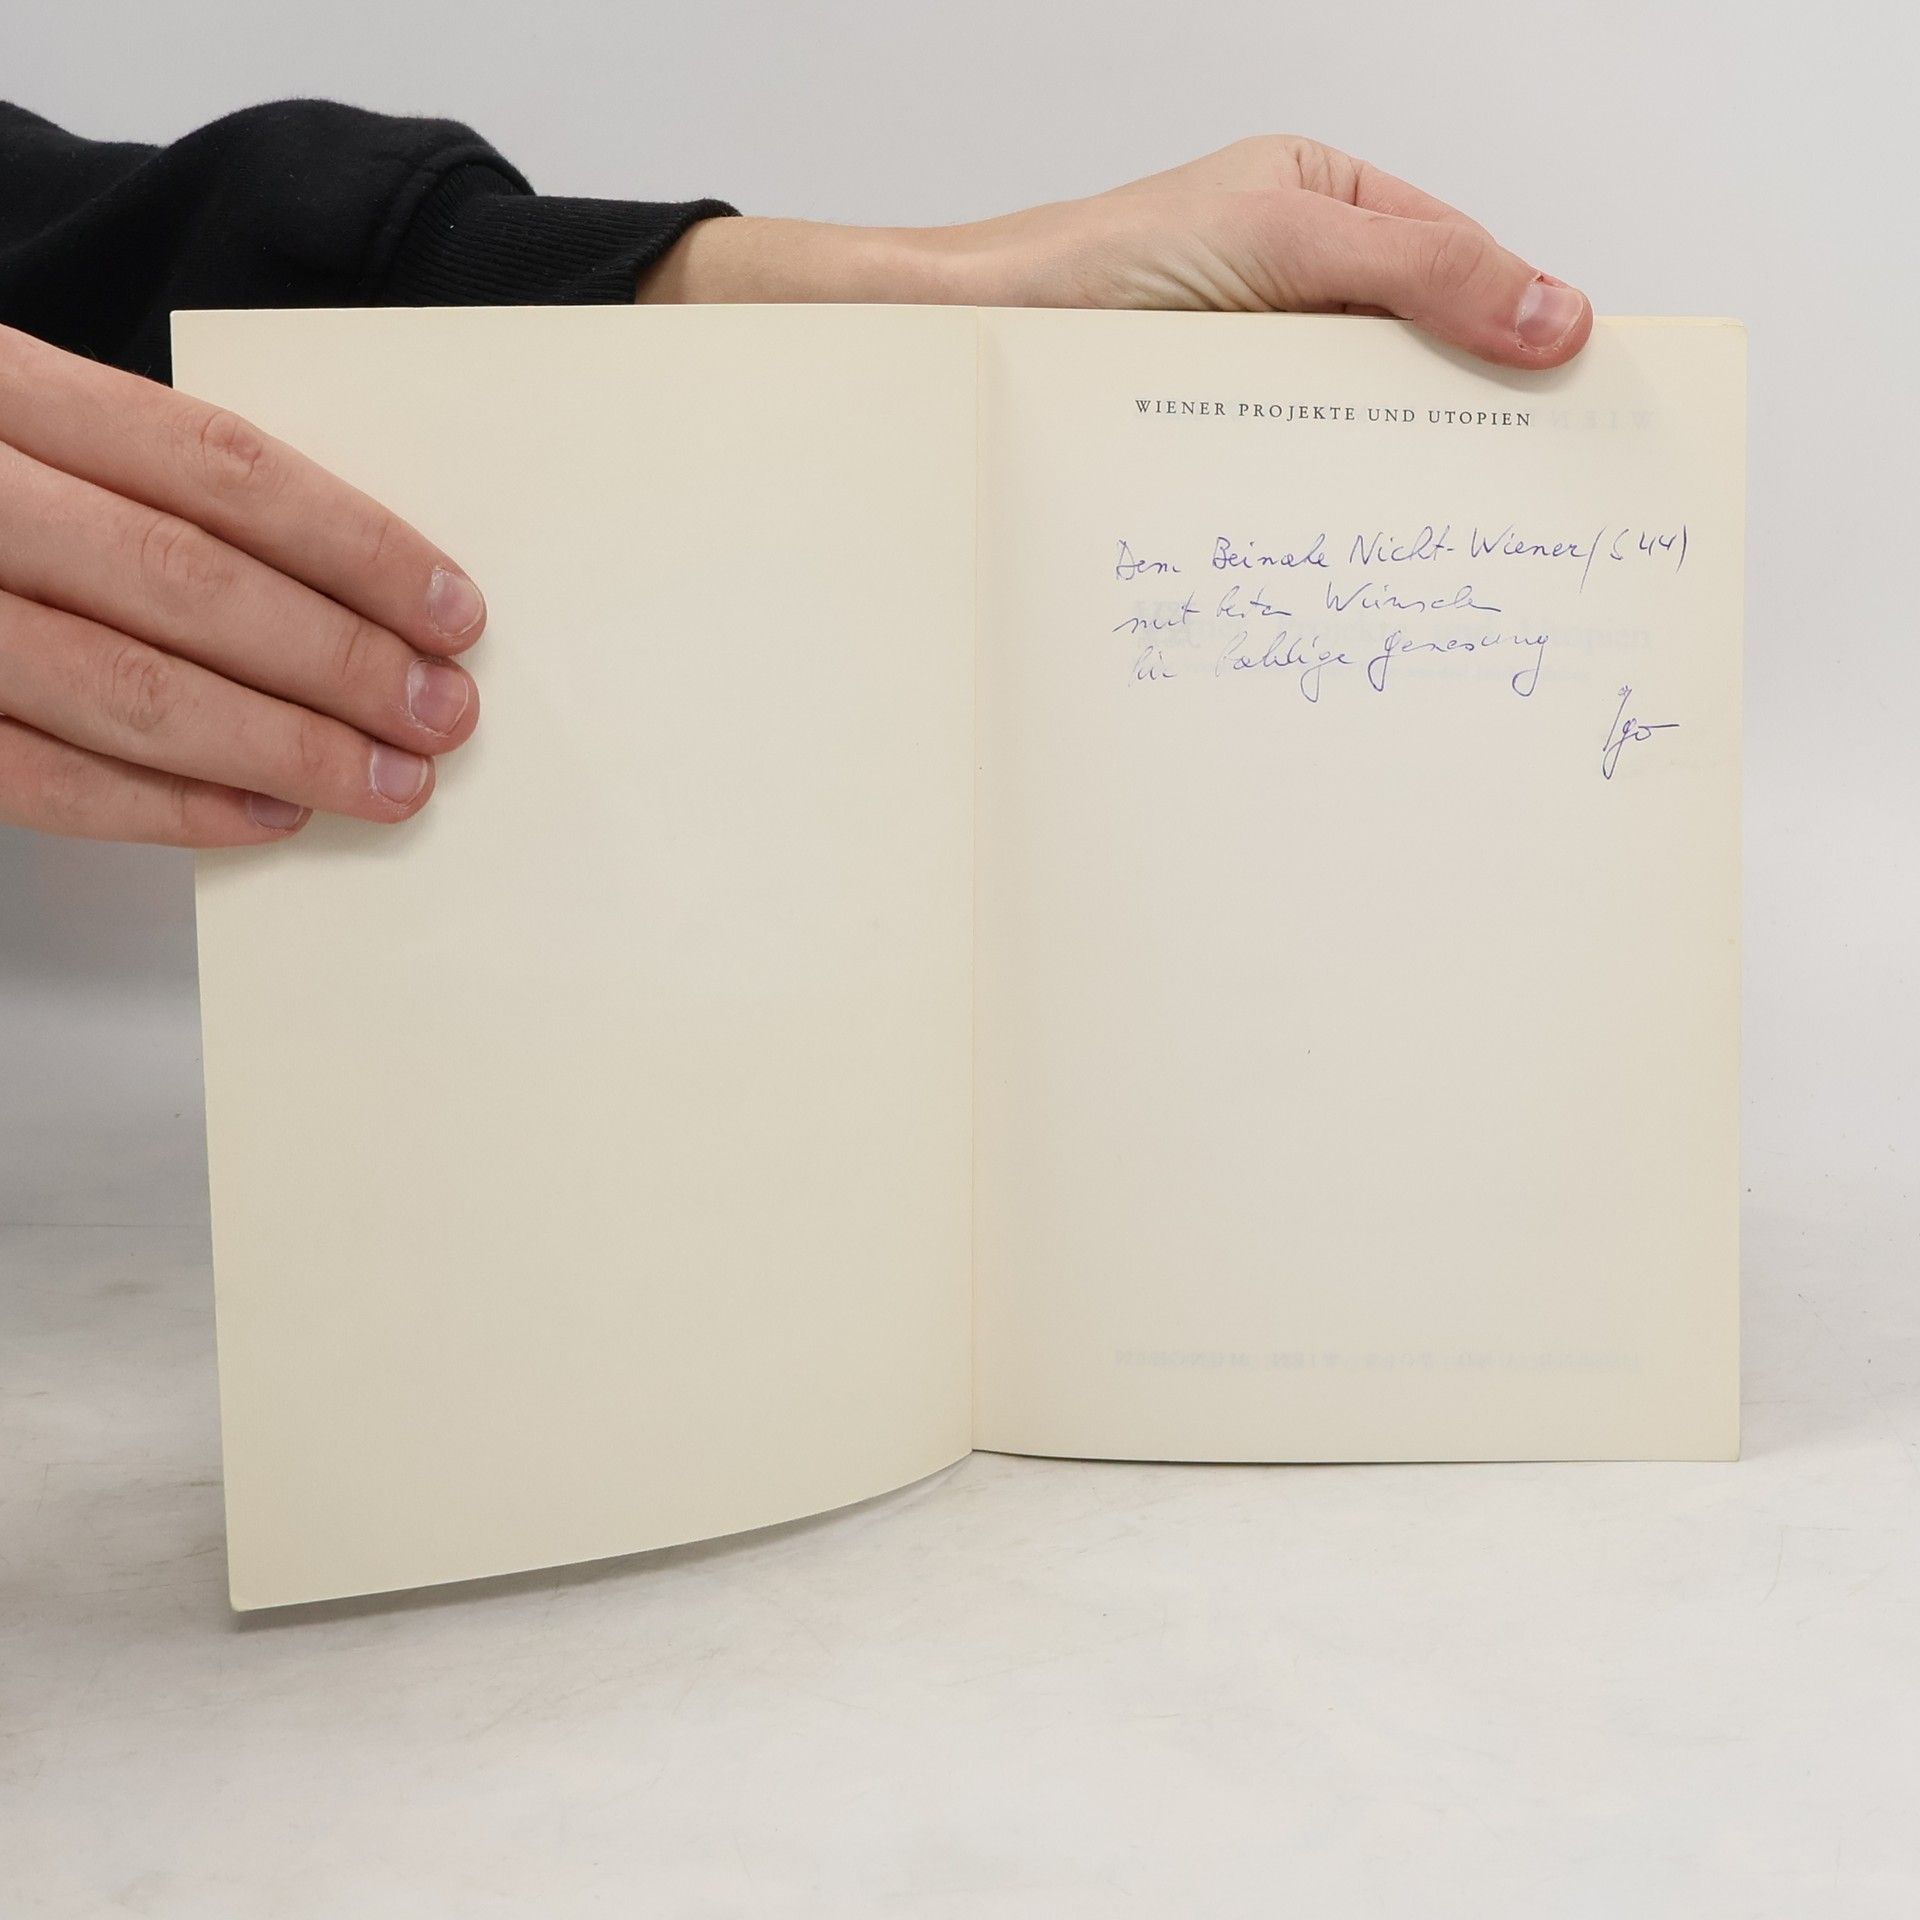 WIENER PROJEKTE UND UTOPIEN
Dem Beinahe Nicht-Wiener (S 44)
mit besten Wünschen
für baldige Genesung
Igo